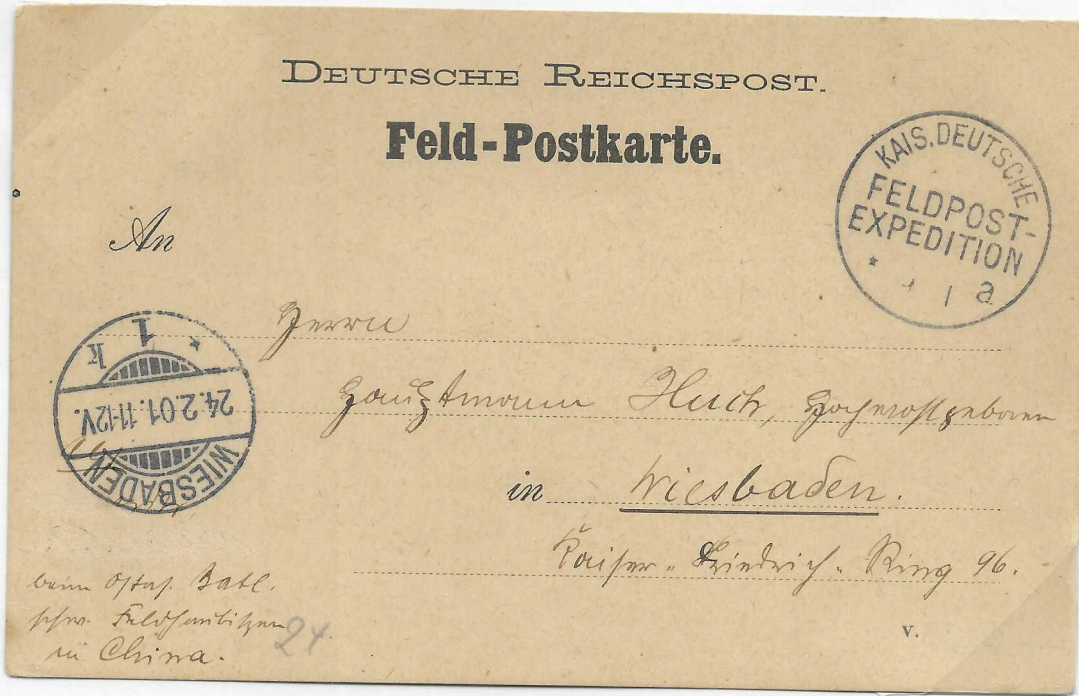 DEUTSCHE REICHSPOST.
Feld-Postkarte.
KAIS. DEUTSCHE
FELDPOST-
EXPEDITION
* 1 a
An
Herrn
Hauptmann Huch, Hochwohlgeboren
in Wiesbaden.
Kaiser-Friedrich-Ring 96.
WIESBADEN
24.2.01.11-12V.
* 1 k
beim Ostas. Batl.
schw. Feldhaubitzen
in China.
24
V.